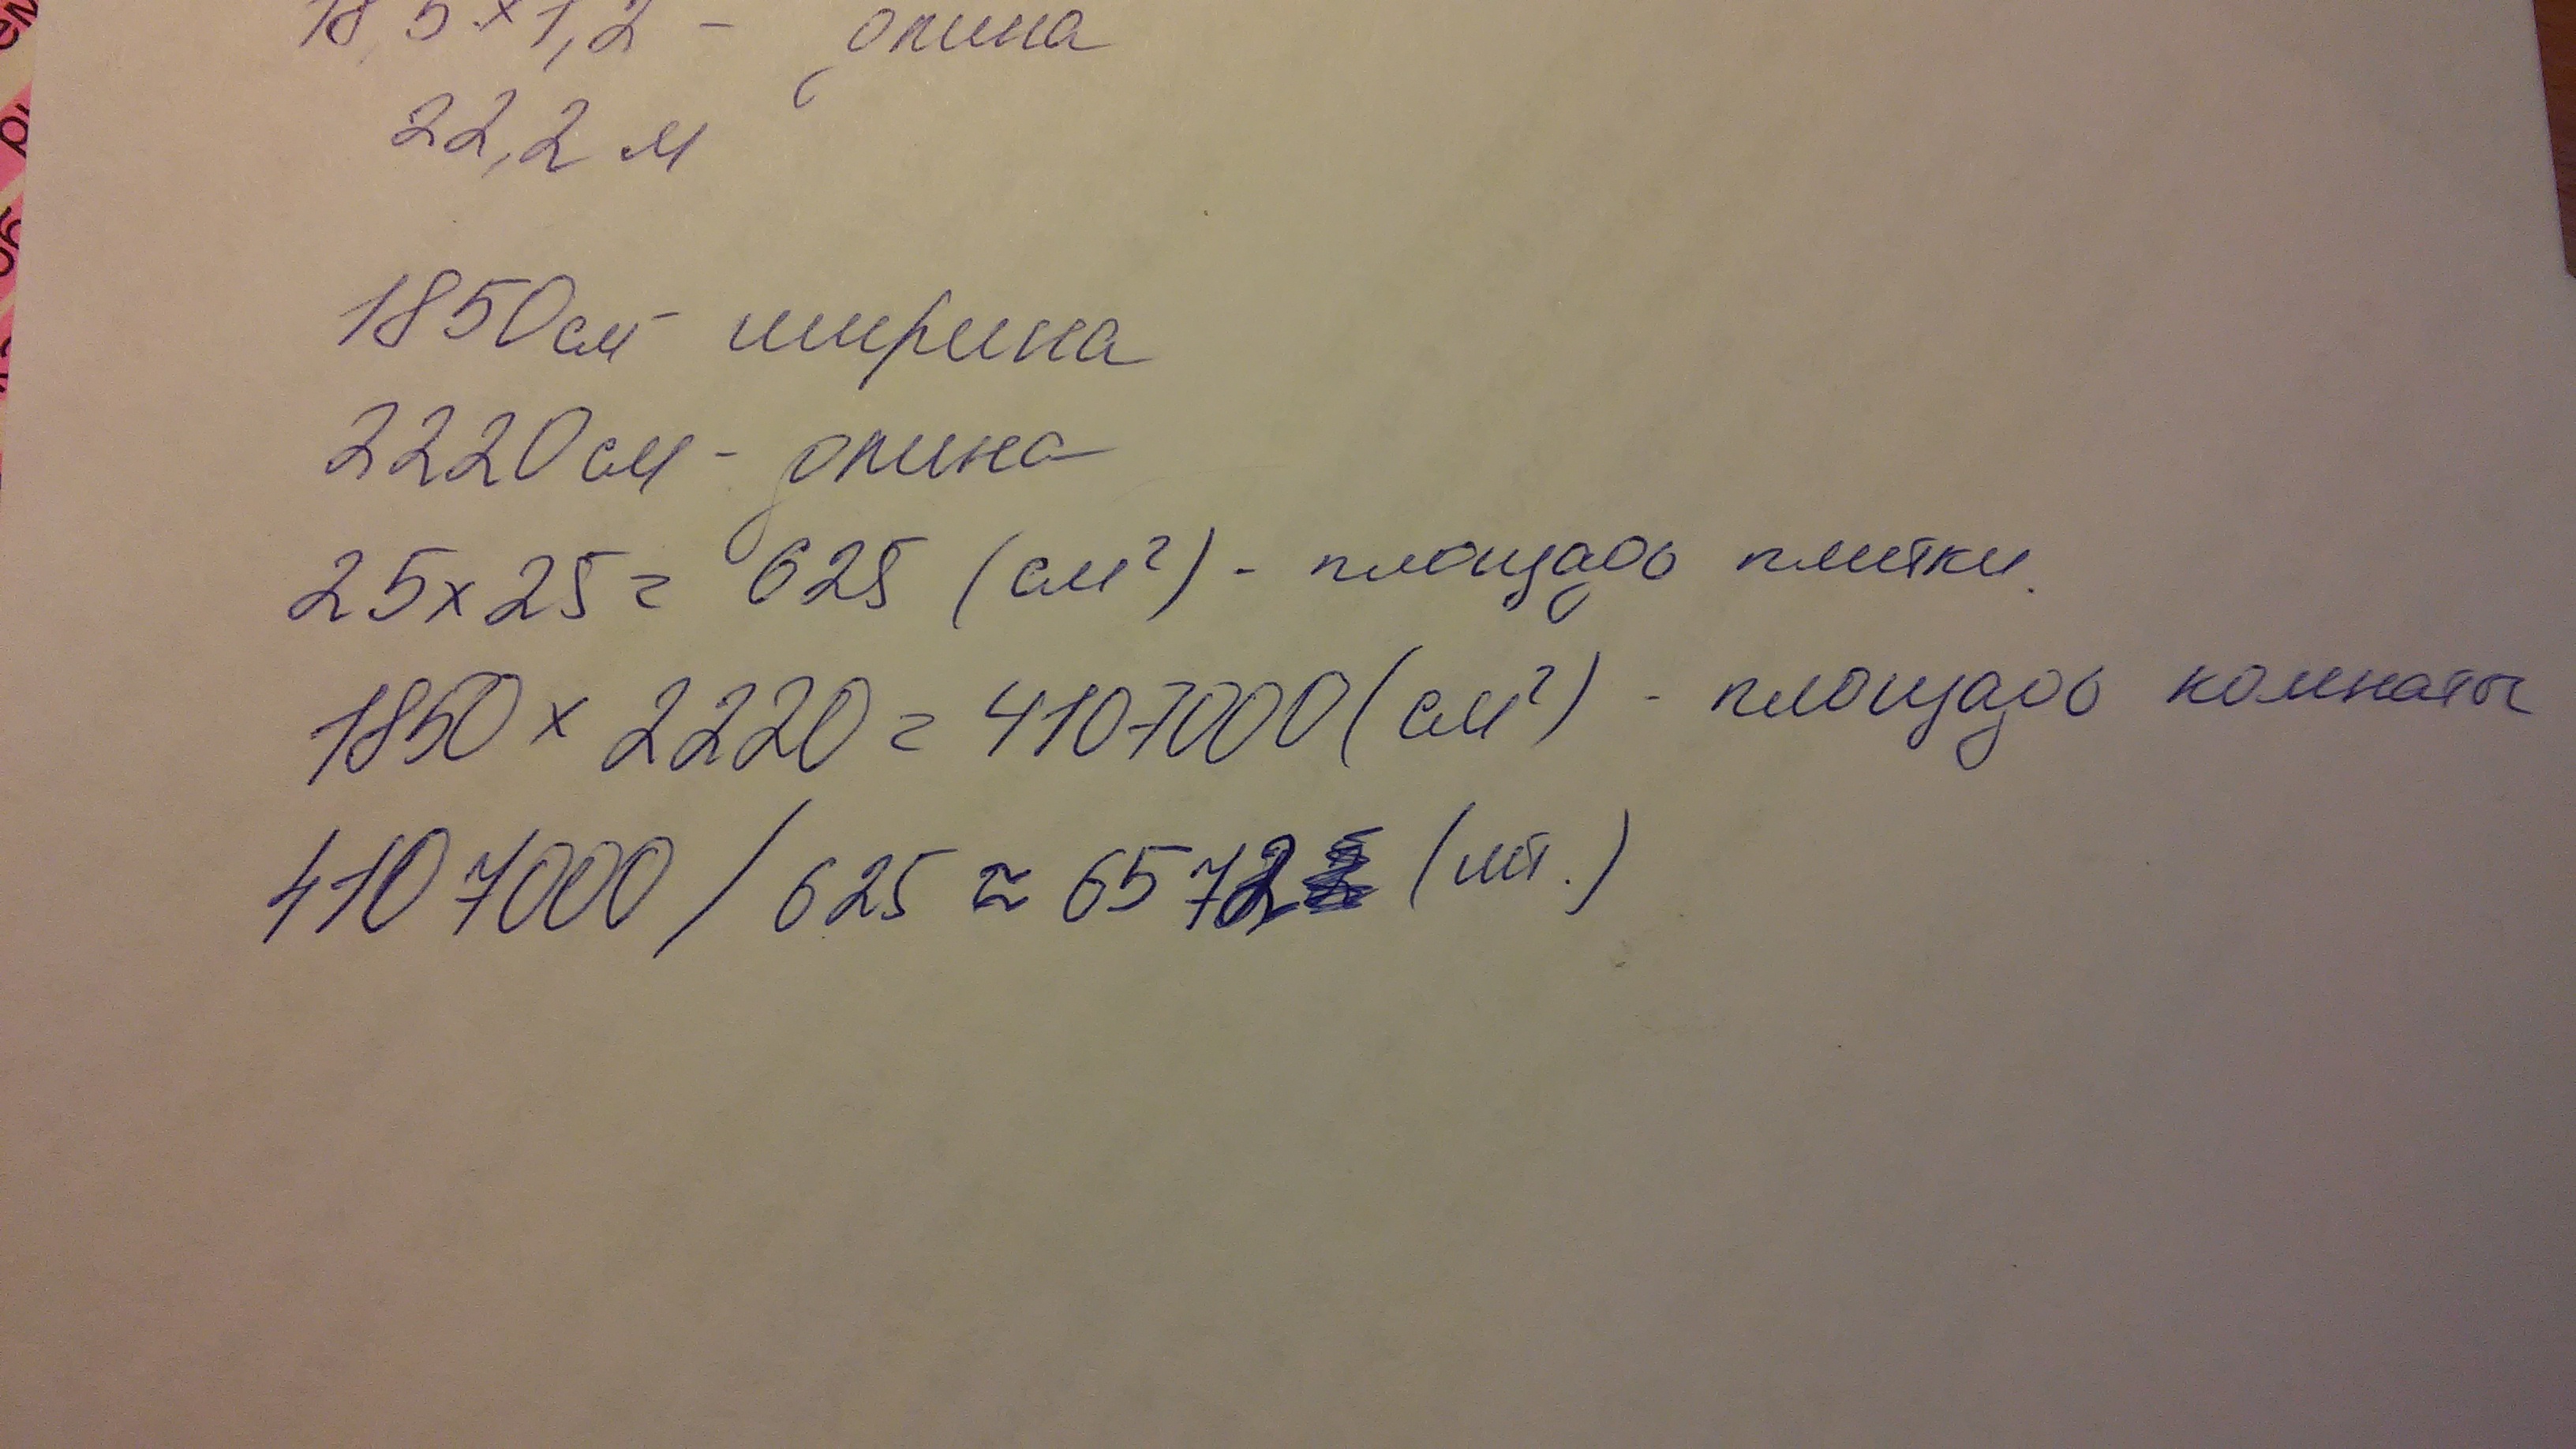 18,5 × 1,2 - длина
22,2 м
1850 см - ширина
2220 см - длина
25 × 25 = 625 (см²) - площадь плитки.
1850 × 2220 = 4107000 (см²) - площадь комнаты
4107000 / 625 ≈ 6572 (шт.)